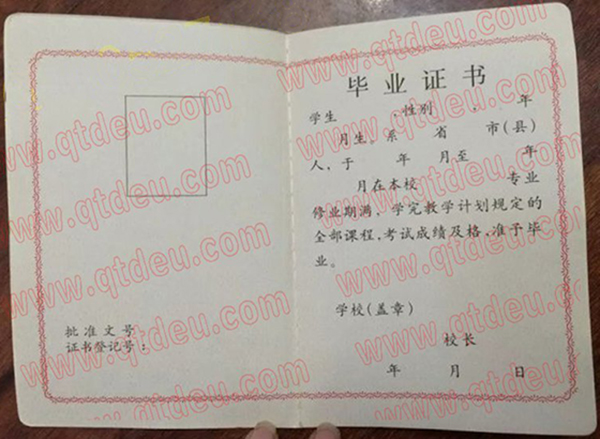 批准文号
证书登记号:
毕业证书
学生 ,性别 , 年
月生。系 省 市(县)
人,于 年 月至 年
月在本校 专业
修业期满,学完教学计划规定的
全部课程,考试成绩及格,准予毕
业。
学校(盖章)
校长
年 月 日
www.qtdeu.com
www.qtdeu.com
www.qtdeu.com
www.qtdeu.com
www.qtdeu.com
www.qtdeu.com